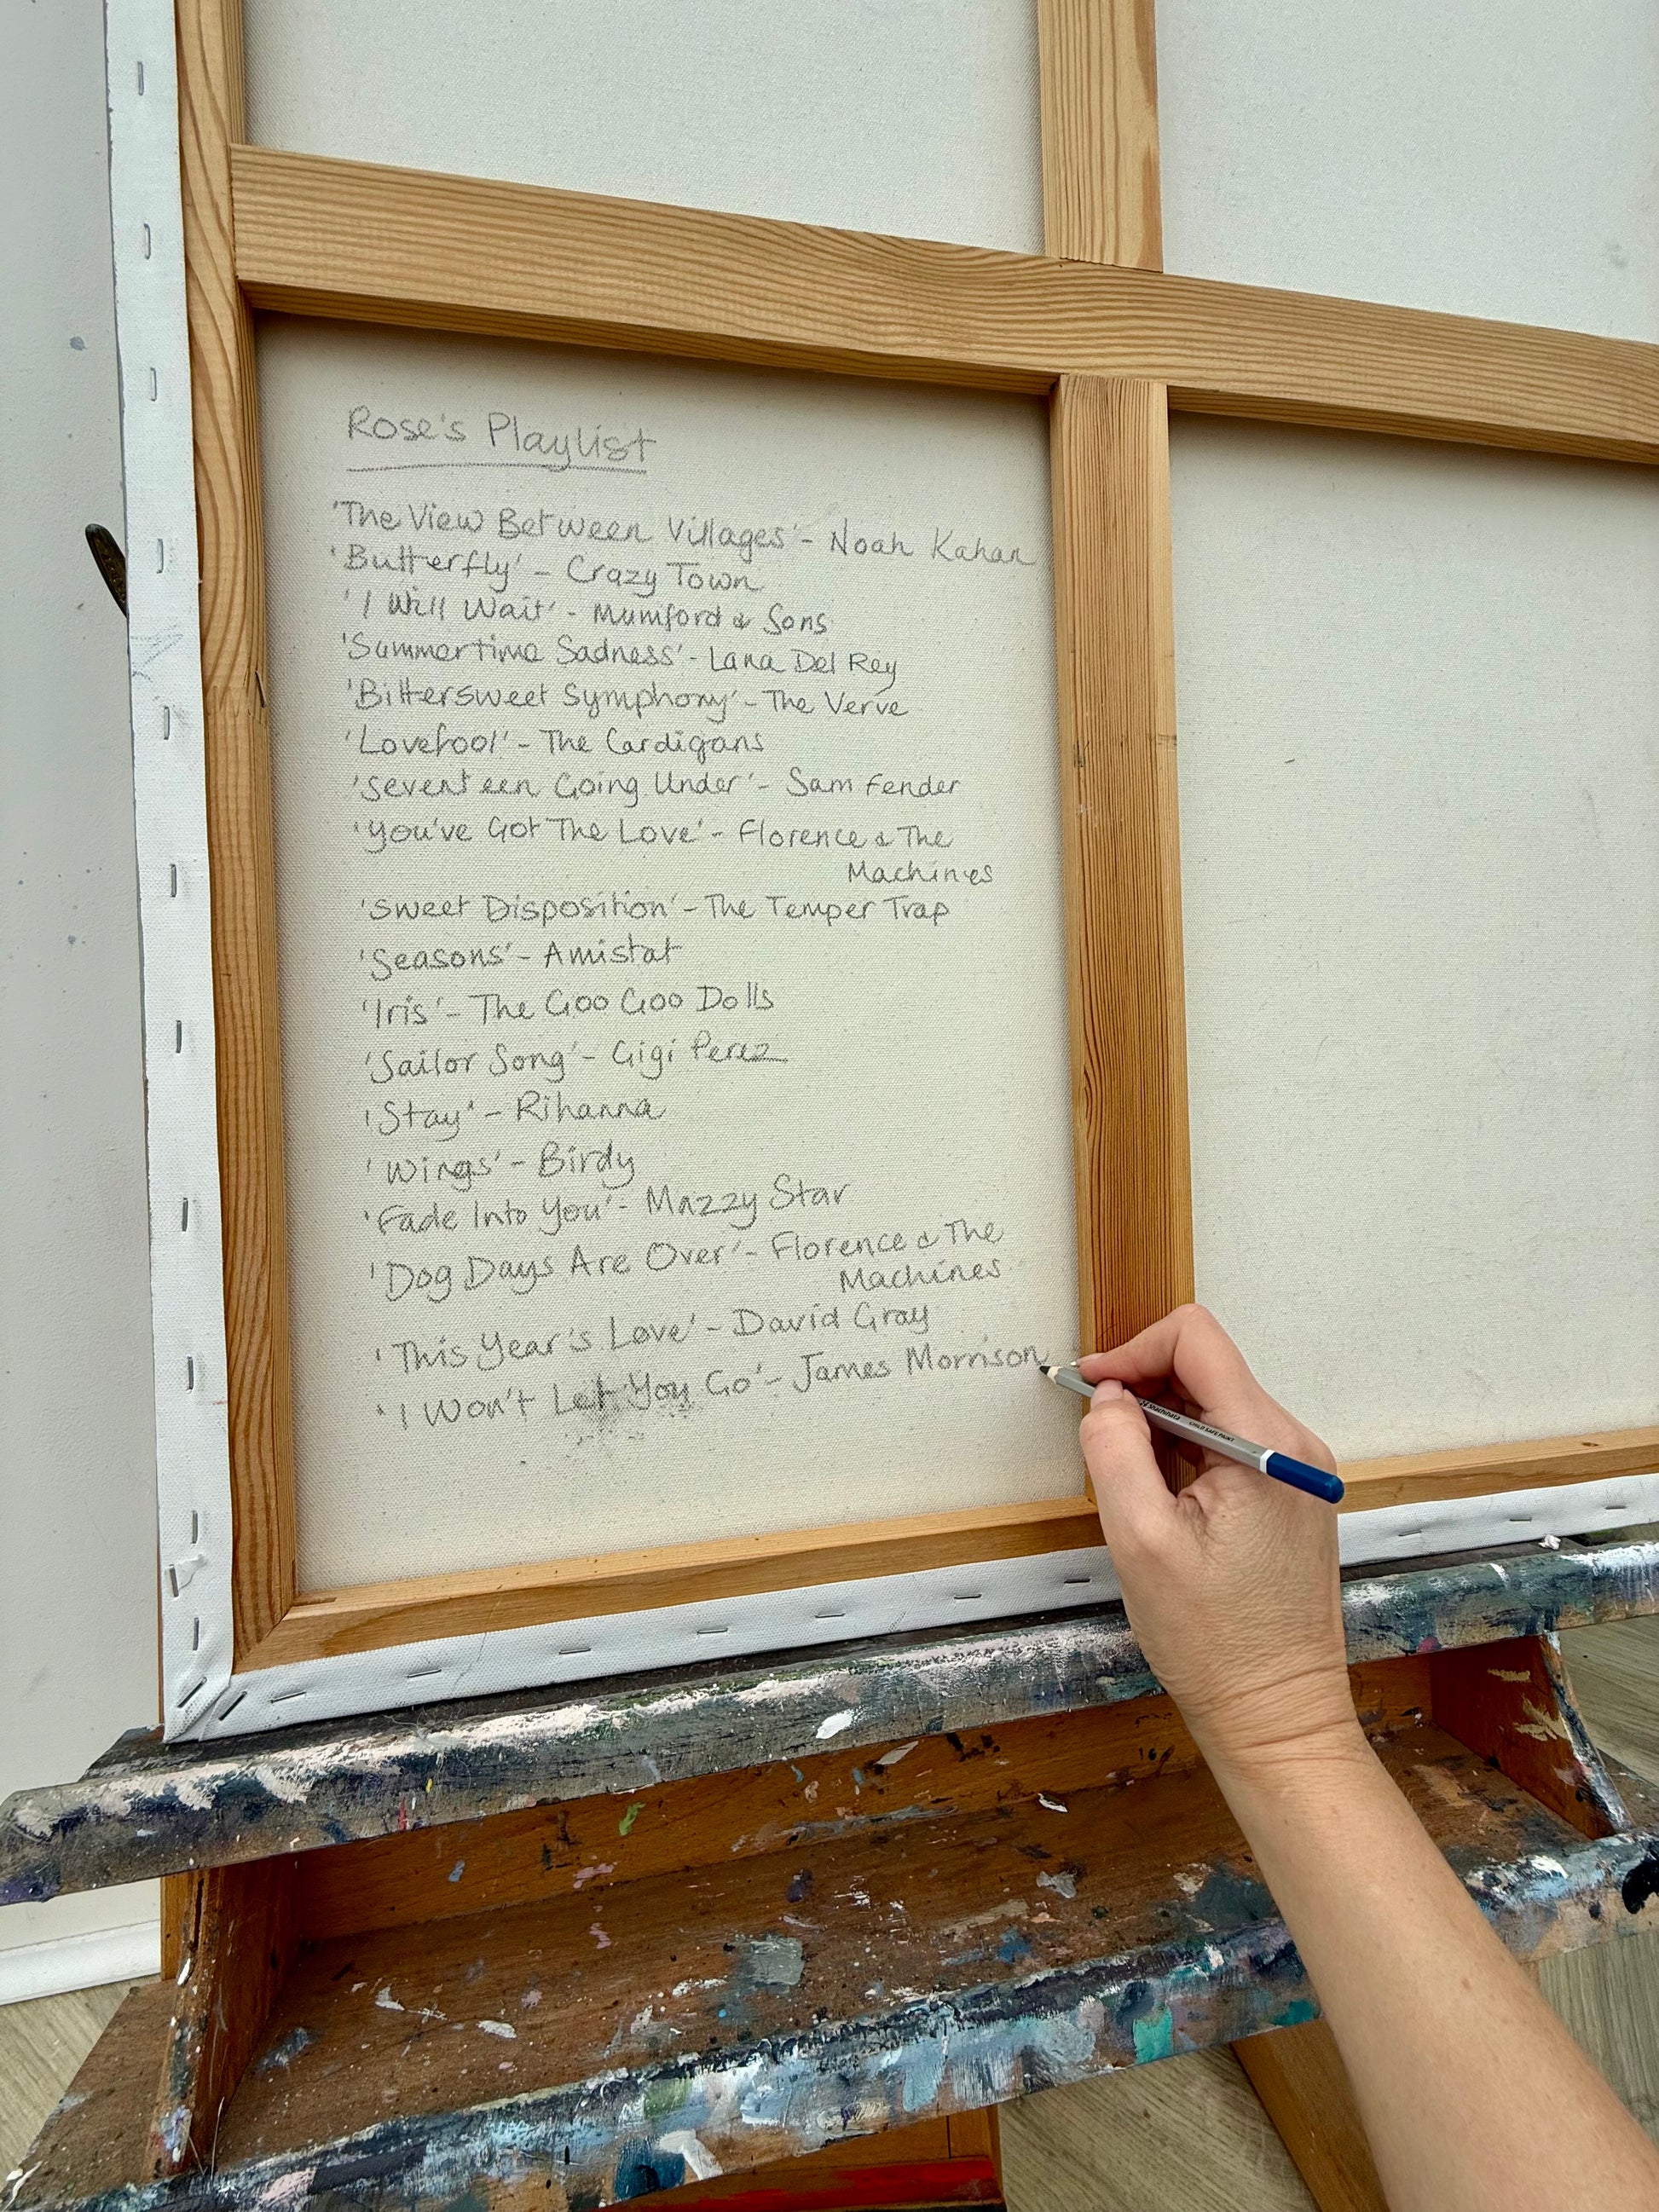 Rose's Playlist
'The View Between Villages' - Noah Kahan
'Butterfly' - Crazy Town
'I Will Wait' - Mumford & Sons
'Summertime Sadness' - Lana Del Rey
'Bittersweet Symphony' - The Verve
'Lovefool' - The Cardigans
'Seventeen Going Under' - Sam Fender
'You've Got The Love' - Florence & The
Machines
'Sweet Disposition' - The Temper Trap
'Seasons' - Amistat
'Iris' - The Goo Goo Dolls
'Sailor Song' - Gigi Perez
'Stay' - Rihanna
'Wings' - Birdy
'Fade Into You' - Mazzy Star
'Dog Days Are Over' - Florence & The
Machines
'This Year's Love' - David Gray
'I Won't Let You Go' - James Morrison